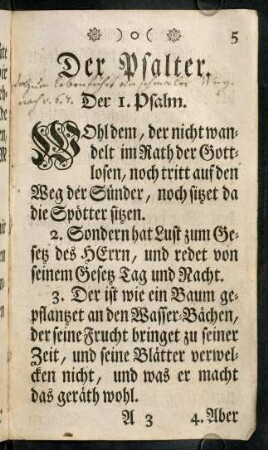 )o( 5
Der Psalter.
nach v. 6.
Der 1. Psalm.
WOhl dem, der nicht wan-
delt im Rath der Gott-
losen, noch tritt auf den
Weg der Sünder, noch sitzet da
die Spötter sitzen.
2. Sondern hat Lust zum Ge-
setz des HErrn, und redet von
seinem Gesetz Tag und Nacht.
3. Der ist wie ein Baum ge-
pflantzet an den Wasser-Bächen,
der seine Frucht bringet zu seiner
Zeit, und seine Blätter verwel-
cken nicht, und was er macht
das geräth wohl.
A 3 4. Aber